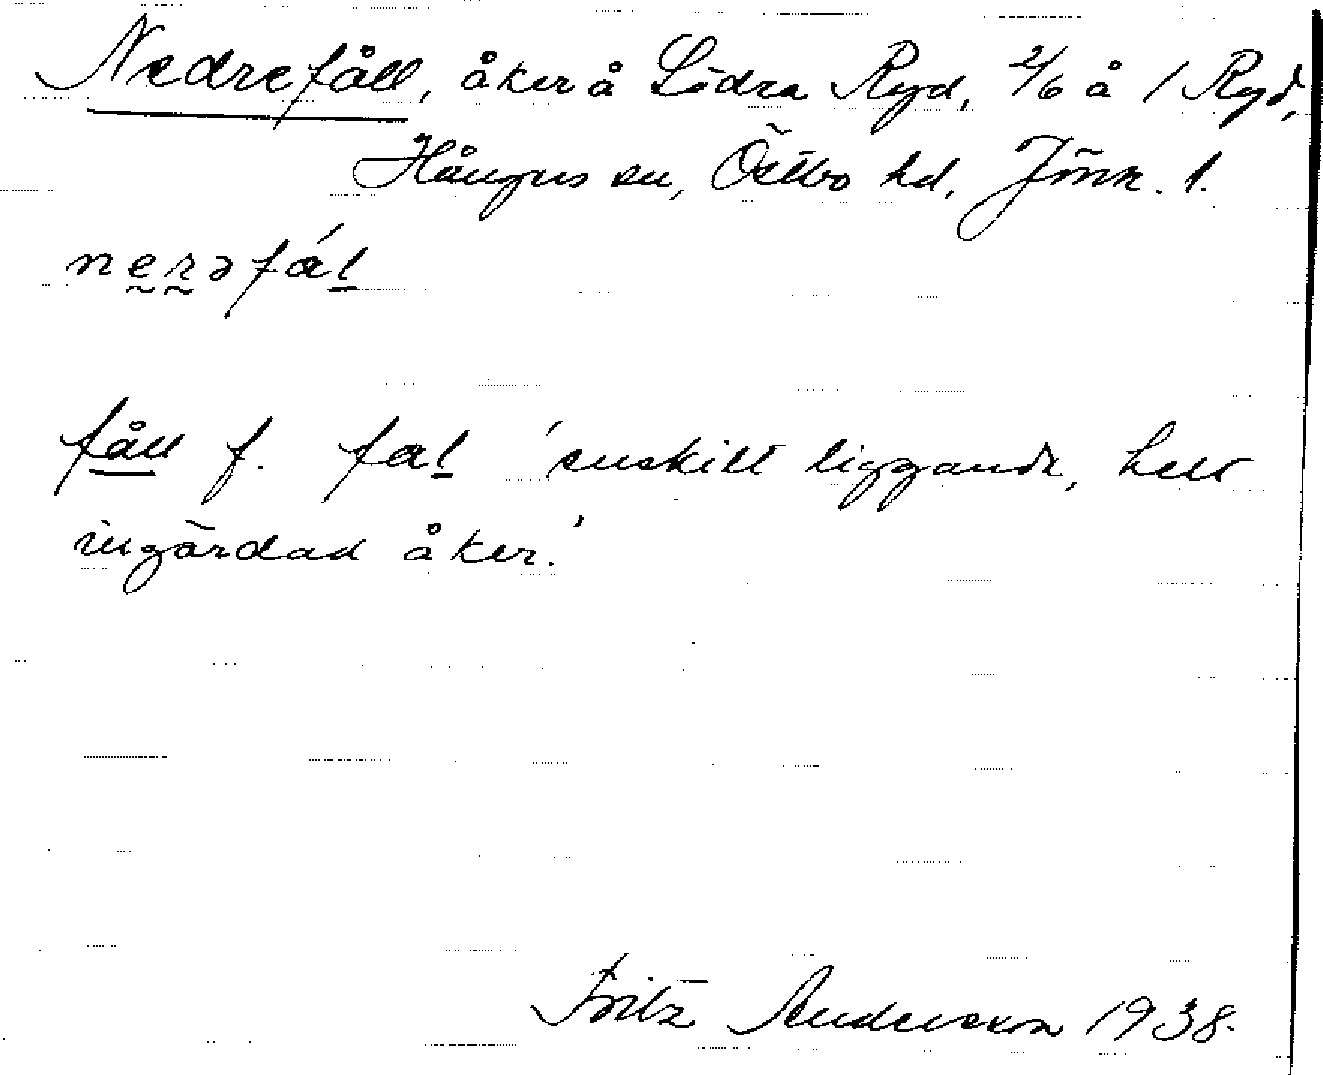 Nedrefåll, åker å Södra Ryd, 2/6 å 1 Ryd,
Hångers sn, Östbo hd, Jönk. l.
nerəfál
fåll f. fal 'enskilt liggande, helt
ingärdad åker.'
Fritz Andersson 1938.